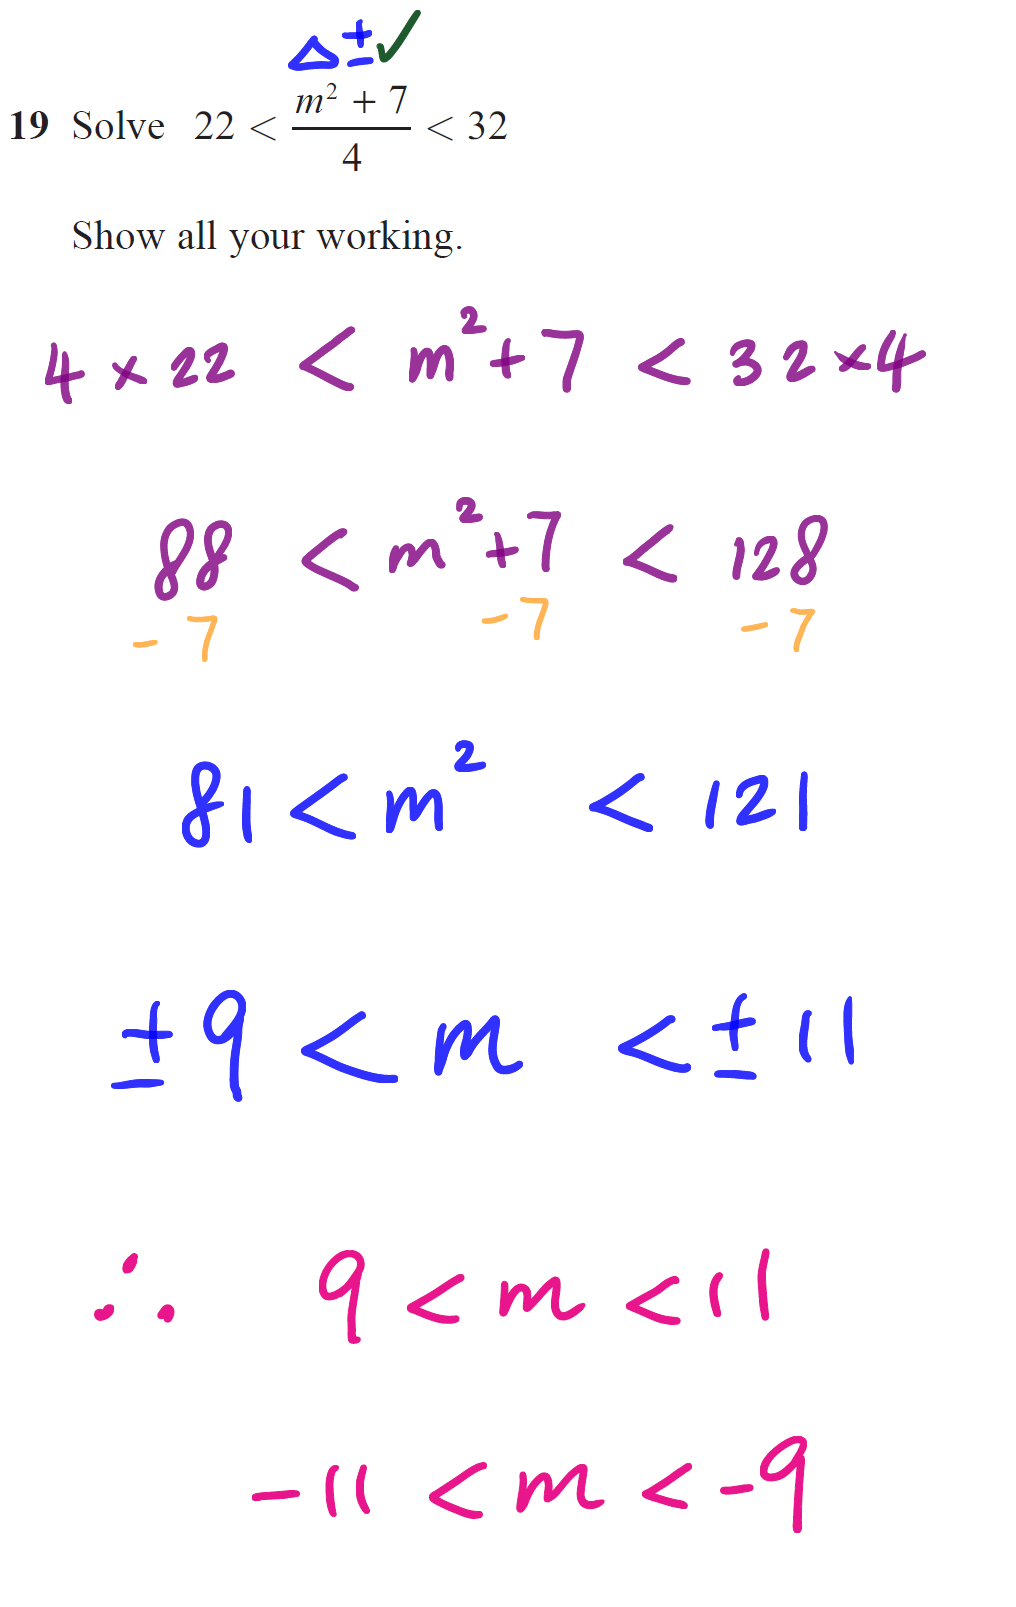 Δ ± ✓
19 Solve 22 < (m² + 7)/4 < 32
Show all your working.
4 × 22 < m² + 7 < 32 × 4
88 < m² + 7 < 128
- 7 - 7 - 7
81 < m² < 121
± 9 < m < ± 11
∴ 9 < m < 11
- 11 < m < - 9